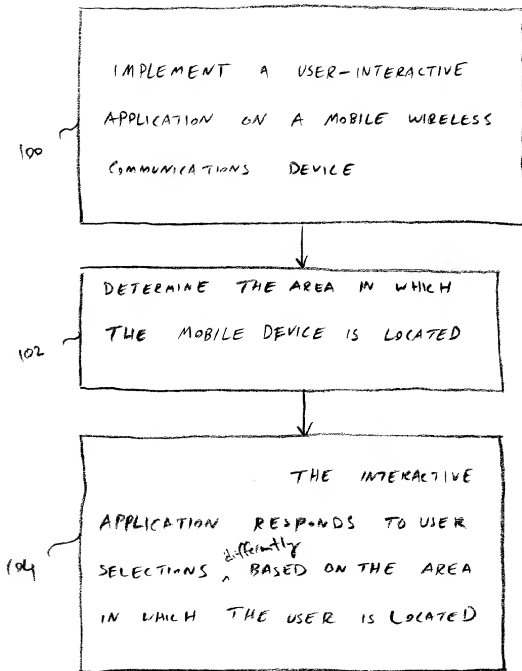 IMPLEMENT A USER-INTERACTIVE
APPLICATION ON A MOBILE WIRELESS
100
COMMUNICATIONS DEVICE
DETERMINE THE AREA IN WHICH
THE MOBILE DEVICE IS LOCATED
102
THE INTERACTIVE
APPLICATION RESPONDS TO USER
differently
SELECTIONS ^ BASED ON THE AREA
104
IN WHICH THE USER IS LOCATED